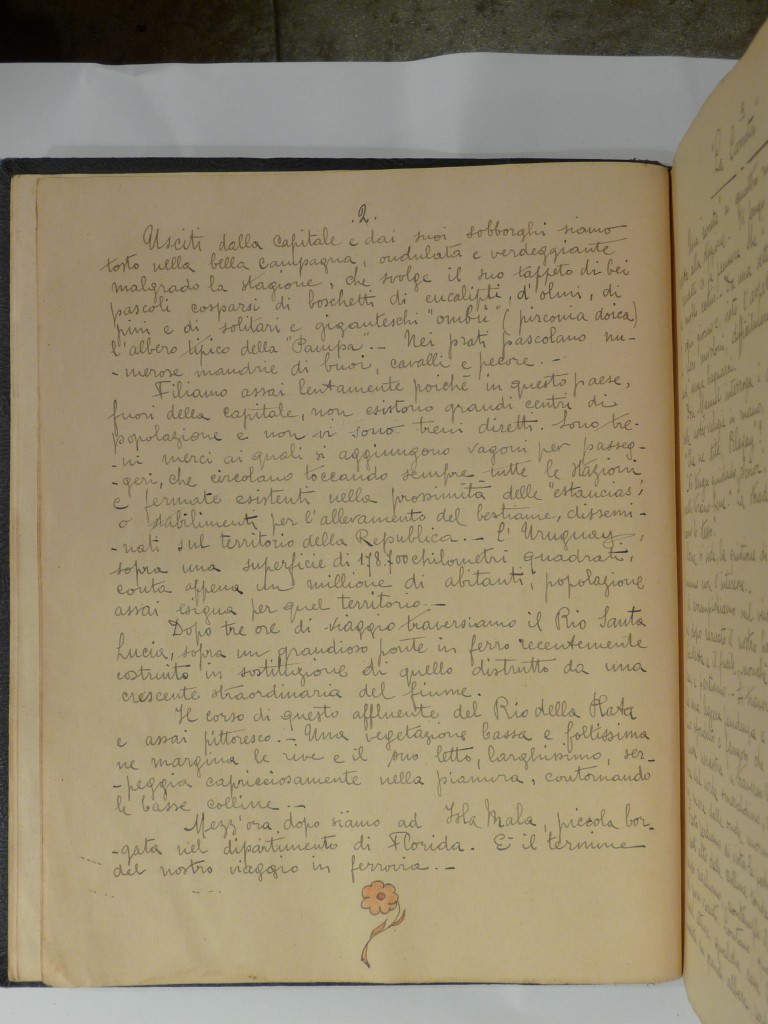 .2.
Usciti dalla capitale e dai suoi sobborghi siamo
tosto nella bella campagna, ondulata e verdeggiante
malgrado la stagione, che svolge il suo tappeto di bei
pascoli cosparsi di boschetti di eucalipti, d'olmi, di
pini e di solitari e giganteschi "ombù" (pirconia doica)
l'albero tipico della "Pampa".- Nei prati pascolano nu-
-merose mandrie di buoi, cavalli e pecore.-
Filiamo assai lentamente poichè in questo paese,
fuori della capitale, non esistono grandi centri di
popolazione e non vi sono treni diretti. Sono tre-
-ni merci ai quali si aggiungono vagoni per passeg-
-geri, che circolano toccando sempre tutte le stazioni
e fermate esistenti nella prossimità delle "estancias",
o stabilimenti per l'allevamento del bestiame, dissemi-
-nati sul territorio della Repubblica.- L'Uruguay,
sopra una superficie di 178.700 chilometri quadrati,
conta appena un millione di abitanti; popolazione
assai esigua per quel territorio.-
Dopo tre ore di viaggio traversiamo il Rio Santa
Lucia, sopra un grandioso ponte in ferro recentemente
costruito in sostituzione di quello distrutto da una
crescente straordinaria del fiume.
Il corso di questo affluente del Rio della Plata
e assai pittoresco.- Una vegetazione bassa e foltissima
ne margina le rive e il suo letto, larghissimo, ser-
-peggia capricciosamente nella pianura, contornando
le basse colline.-
Mezz'ora dopo siamo ad Isla Mala, piccola bor-
-gata nel dipartimento di Florida. E' il termine
del nostro viaggio in ferrovia.-